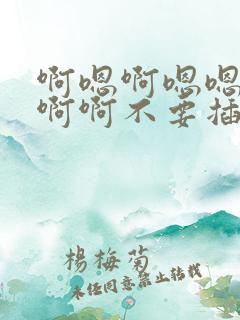 啊嗯啊嗯嗯
啊啊不要插
杨梅菊
未经同意禁止转载